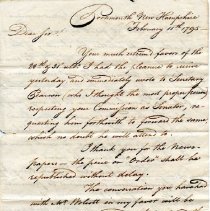 Portsmouth New Hampshire
February 10th 1795
Dear Sir,
Your much esteemed favors of the
26th of ult. I had the pleasure to receive
yesterday and immediately wrote to Secretary
Pearson, who I thought the most proper person,
respecting your Commission as Senator, re-
questing him forthwith to forward the same,
which no doubt he will attend to.
I thank you for the News-
papers — the piece on "Orders" shall be
republished without delay.
The conversation you have had
with Mr Wolcott in my favor will be